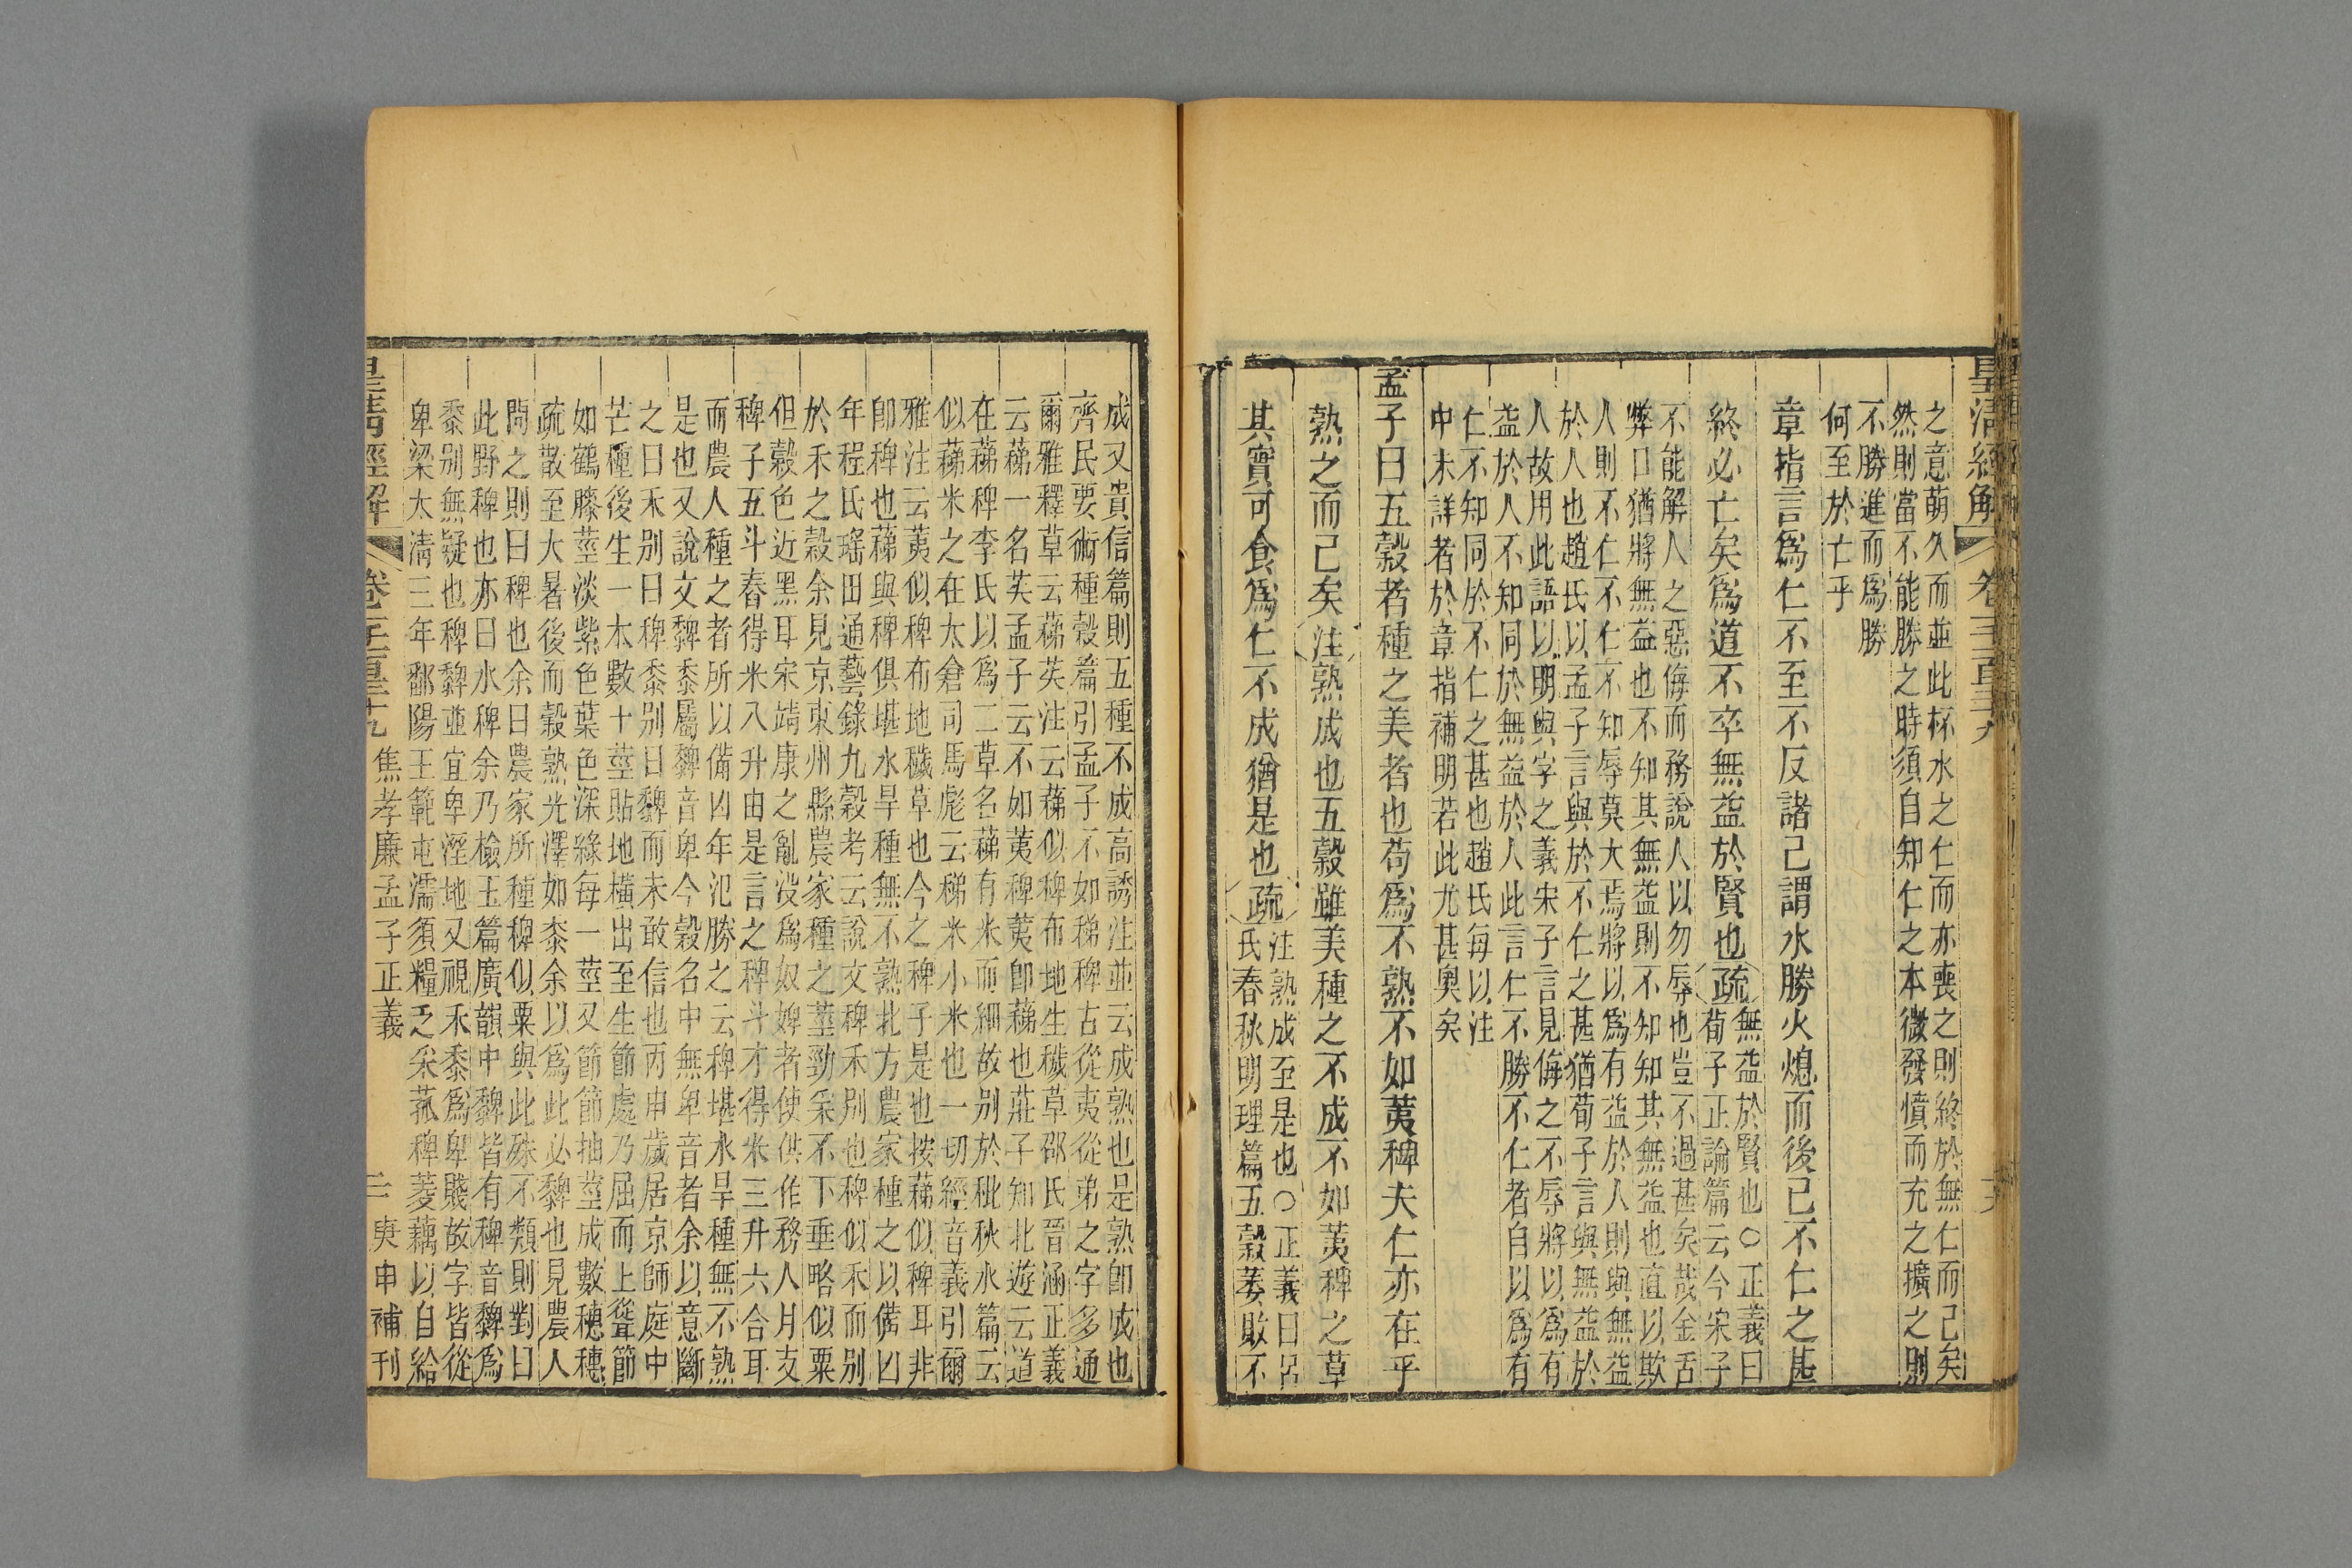 皇清經解
之意萌久而並此杯水之仁而亦喪之則終於無仁而已矣
然則當不能勝之時須自知仁之本微發憤而充之擴之則
不勝進而爲勝
何至於亡乎
章指言爲仁不至不反諸己謂水勝火熄而後已不仁之甚
終必亡矣爲道不卒無益於賢也疏
無益於賢也○正義曰
荀子正論篇云今宋子
不能解人之惡侮而務說人以勿辱也豈不過甚矣哉金舌
弊口猶將無益也不知其無益則不知知其無益也直以欺
人則不仁不仁不知辱莫大焉將以爲有益於人則與無益
於人也趙氏以孟子言與於不仁之甚猶荀子言與無益於
人故用此語以明與字之義宋子言見侮之不辱將以爲有
益於人不知同於無益於人此言仁不勝不仁者自以爲有
仁不知同於不仁之甚也趙氏每以注
中未詳者於章指補明若此尤甚奧矣
孟子曰五穀者種之美者也苟爲不熟不如荑稗夫仁亦在乎
熟之而已矣注熟成也五穀雖美種之不成不如荑稗之草
其實可食爲仁不成猶是也疏
注熟成至是也○正義曰呂
氏春秋明理篇五穀萎敗不
成又貴信篇則五種不成高誘注並云成熟也是熟卽成也
齊民要術種穀篇引孟子不如稊稗古從夷從弟之字多通
爾雅釋草云蕛苵注云蕛似稗布地生穢草邵氏晉涵正義
云蕛一名苵孟子云不如荑稗荑卽蕛也莊子知北遊云道
在蕛稗李氏以爲二草名蕛有米而細故别於秕秋水篇云
似蕛米之在太倉司馬彪云稊米小米也一切經音義引爾
雅注云荑似稗布地穢草也今之稗子是也按蕛似稗耳非
卽稗也蕛與稗俱堪水旱種無不熟北方農家種之以備凶
年程氏瑤田通藝錄九穀考云說文稗禾别也稗似禾而别
於禾之穀余見京東州縣農家種之莖勁采不下垂略似粟
但穀色近黑耳宋靖康之亂没爲奴婢者使供作務人月支
稗子五斗舂得米八升由是言之稗斗才得米三升六合耳
而農人種之者所以備凶年氾勝之云稗堪水旱種無不熟
是也又說文䅟黍屬䅟音卑今穀名中無卑音者余以意斷
之曰禾别曰稗黍别曰䅟而未敢信也丙申歲居京師庭中
芒種後生一本數十莖貼地橫出至生節處乃屈而上聳節
如鶴膝莖淡紫色葉色深綠每一莖又節節抽莖成數穗穗
疏散至大暑後而穀熟光澤如黍余以爲此必䅟也見農人
問之則曰稗也余曰農家所種稗似粟與此殊不類則對曰
此野稗也亦曰水稗余乃檢玉篇廣韻中䅟皆有稗音䅟爲
黍别無疑也稗䅟並宜卑溼地又視禾黍爲卑賤故字皆從
卑梁太淸三年鄱陽王範屯濡須糧乏采菰稗菱藕以自給
皇淸經解
焦孝廉孟子正義
二
庚申補刊